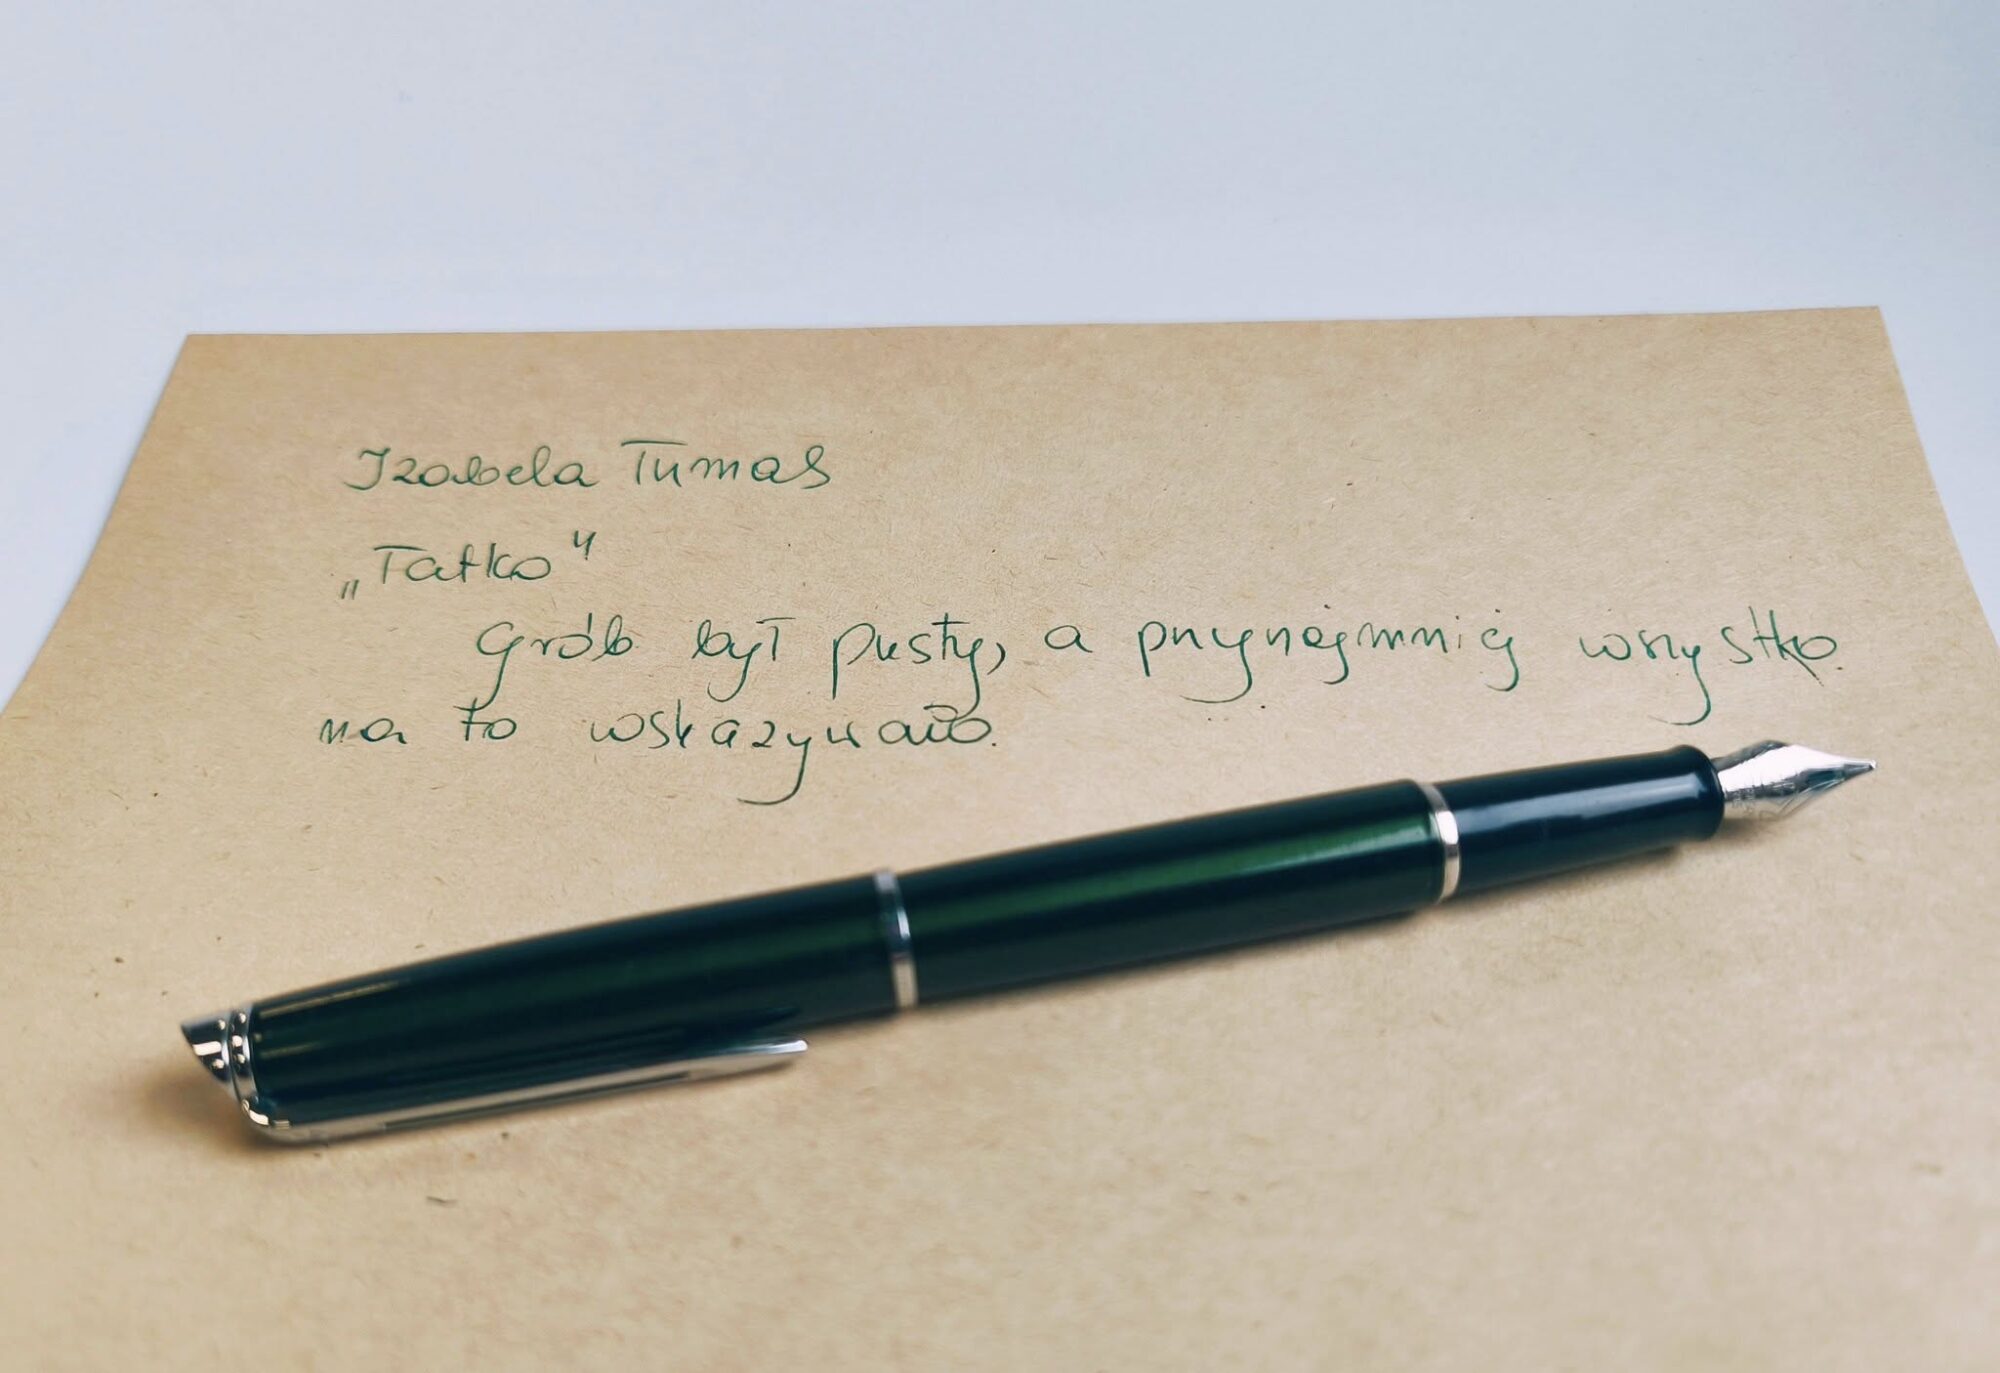 Izabela Tumas
„Tatko"
Grób był pusty, a przynajmniej wszystko
na to wskazywało.